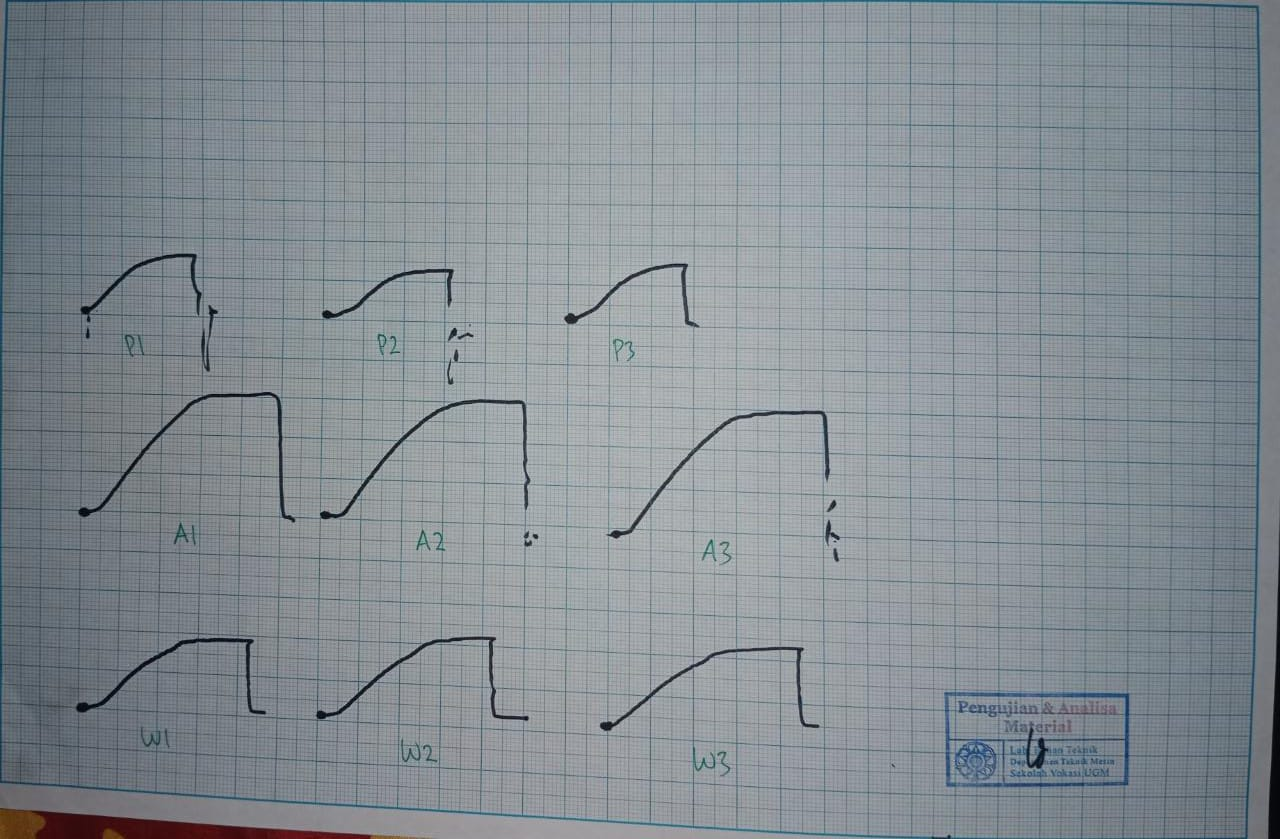 P1 P2 P3
A1 A2 A3
W1 W2 W3
Pengujian & Analisa
Material
Teknik
Teknik Mesin
Sekolah Vokasi UGM